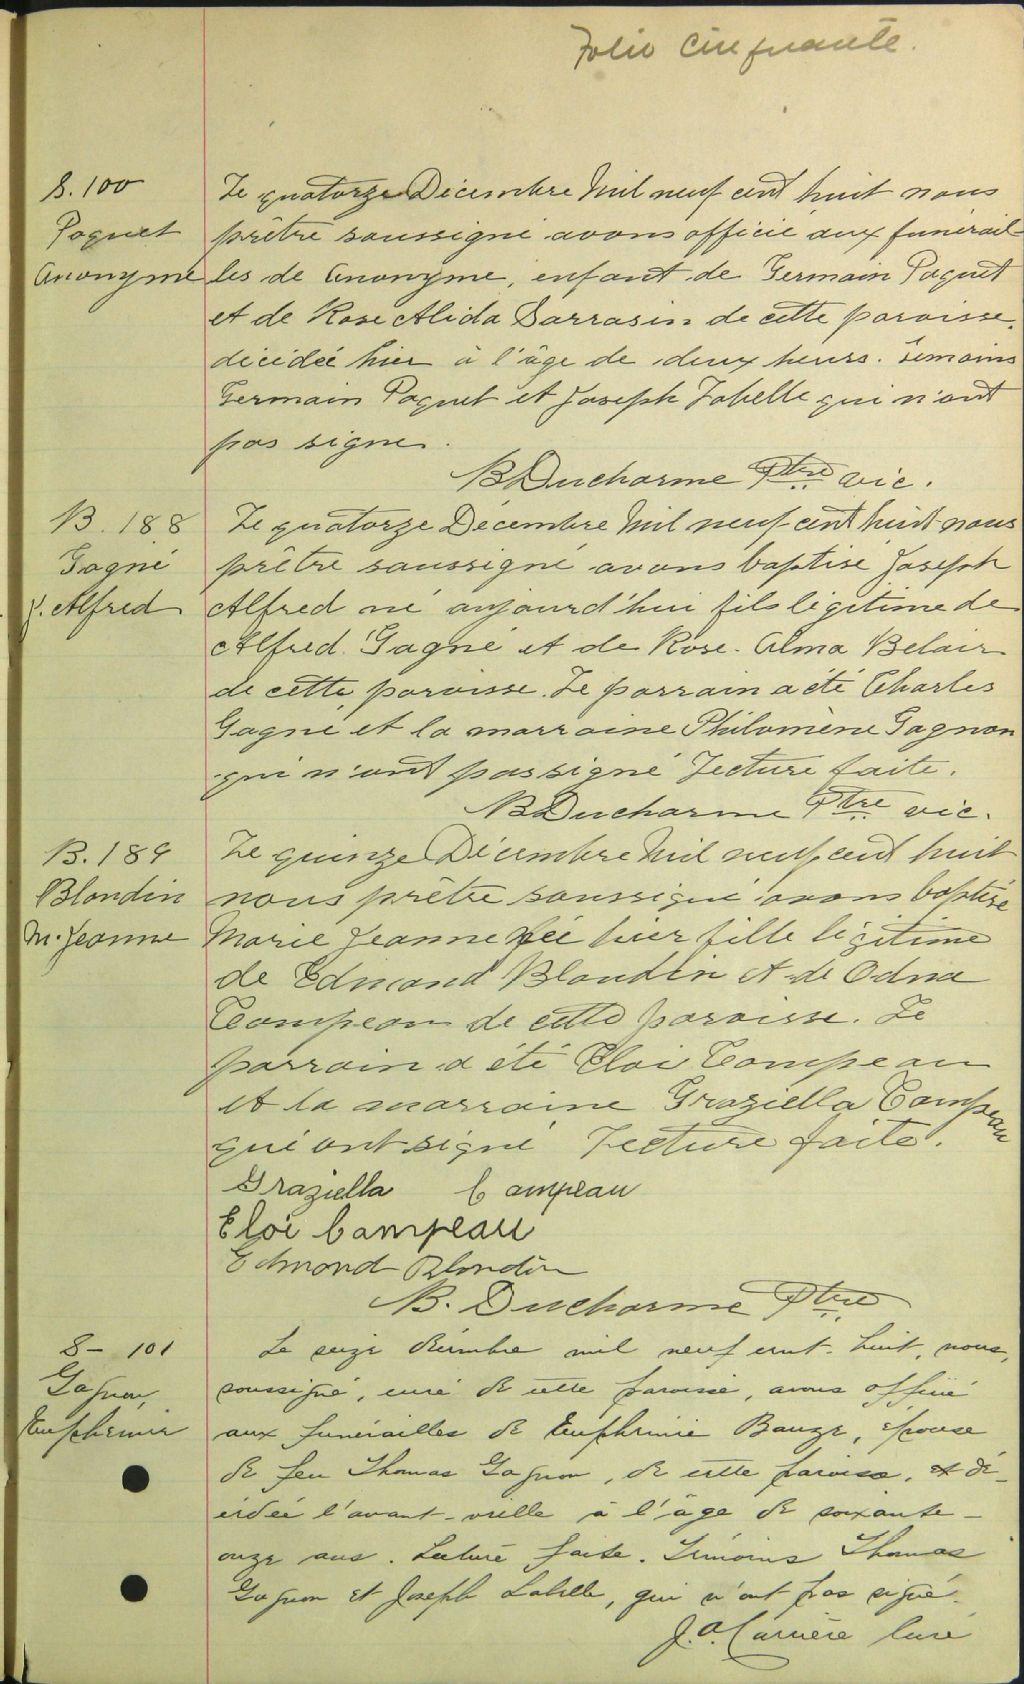 Folio cinquante.
S. 100
Paquet
Anonyme
Le quatorze Décembre Mil neuf cent huit nous
prêtre soussigné avons officié aux funérail
les de Anonyme, enfant de Germain Paquet
et de Rose Alida Sarrasin de cette paroisse.
décédée hier à l'âge de deux heurs. Témoins
Germain Paquet et Joseph Labelle qui n'ont
pas signé.
B Ducharme Ptre vic.
B. 188
Gagné
J. Alfred
Le quatorze Décembre Mil neuf cent huit nous
prêtre soussigné avons baptisé Joseph
Alfred né aujourd'hui fils légitime de
Alfred Gagné et de Rose-Alma Belair
de cette paroisse. Le parrain a été Charles
Gagné et la marraine Philomène Gagnon
qui n'ont pas signé Lecture faite.
B Ducharme Ptre vic.
B. 189
Blondin
M. Jeanne
Le quinze Décembre Mil neuf cent huit
nous prêtre soussigné avons baptisé
Marie Jeanne née hier fille légitime
de Edmond Blondin et de Odna
Campeau de cette paroisse. Le
parrain a été Eloi Campeau
et la marraine Graziella Campeau
qui ont signé Lecture faite.
Graziella Campeau
Eloi Campeau
Edmond Blondin
B. Ducharme Ptre
S- 101
Gagnon,
Euphémie
Le seize décembre mil neuf cent-huit, nous,
soussigné, curé de cette paroisse, avons officié
aux funérailles de Euphémie Bauze, épouse
de feu Thomas Gagnon, de cette paroisse, et dé-
cédée l'avant-veille à l'âge de soixante-
onze ans. Lecture faite. Témoins Thomas
Gagnon et Joseph Labelle, qui n'ont pas signé.
J. A. Carrière Curé